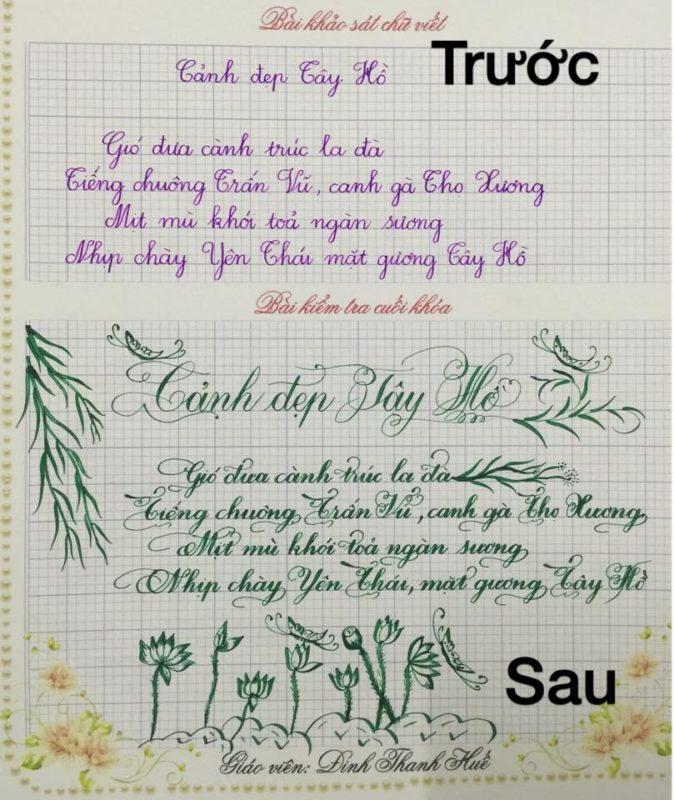 Bài khảo sát chữ viết
Trước
Cảnh đẹp Tây Hồ
Gió đưa cành trúc la đà
Tiếng chuông Trấn Vũ, canh gà Thọ Xương
Mịt mù khói toả ngàn sương
Nhịp chày Yên Thái mặt gương Tây Hồ
Bài kiểm tra cuối khóa
Cảnh đẹp Tây Hồ
Gió đưa cành trúc la đà
Tiếng chuông Trấn Vũ, canh gà Thọ Xương
Mịt mù khói toả ngàn sương
Nhịp chày Yên Thái, mặt gương Tây Hồ
Sau
Giáo viên: Đinh Thanh Huế